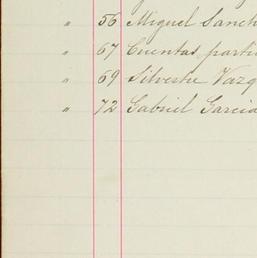 " 56 Miguel Sanch
" 67 Cuentas partic
" 69 Silvestre Vazq
" 72 Gabriel Garcia